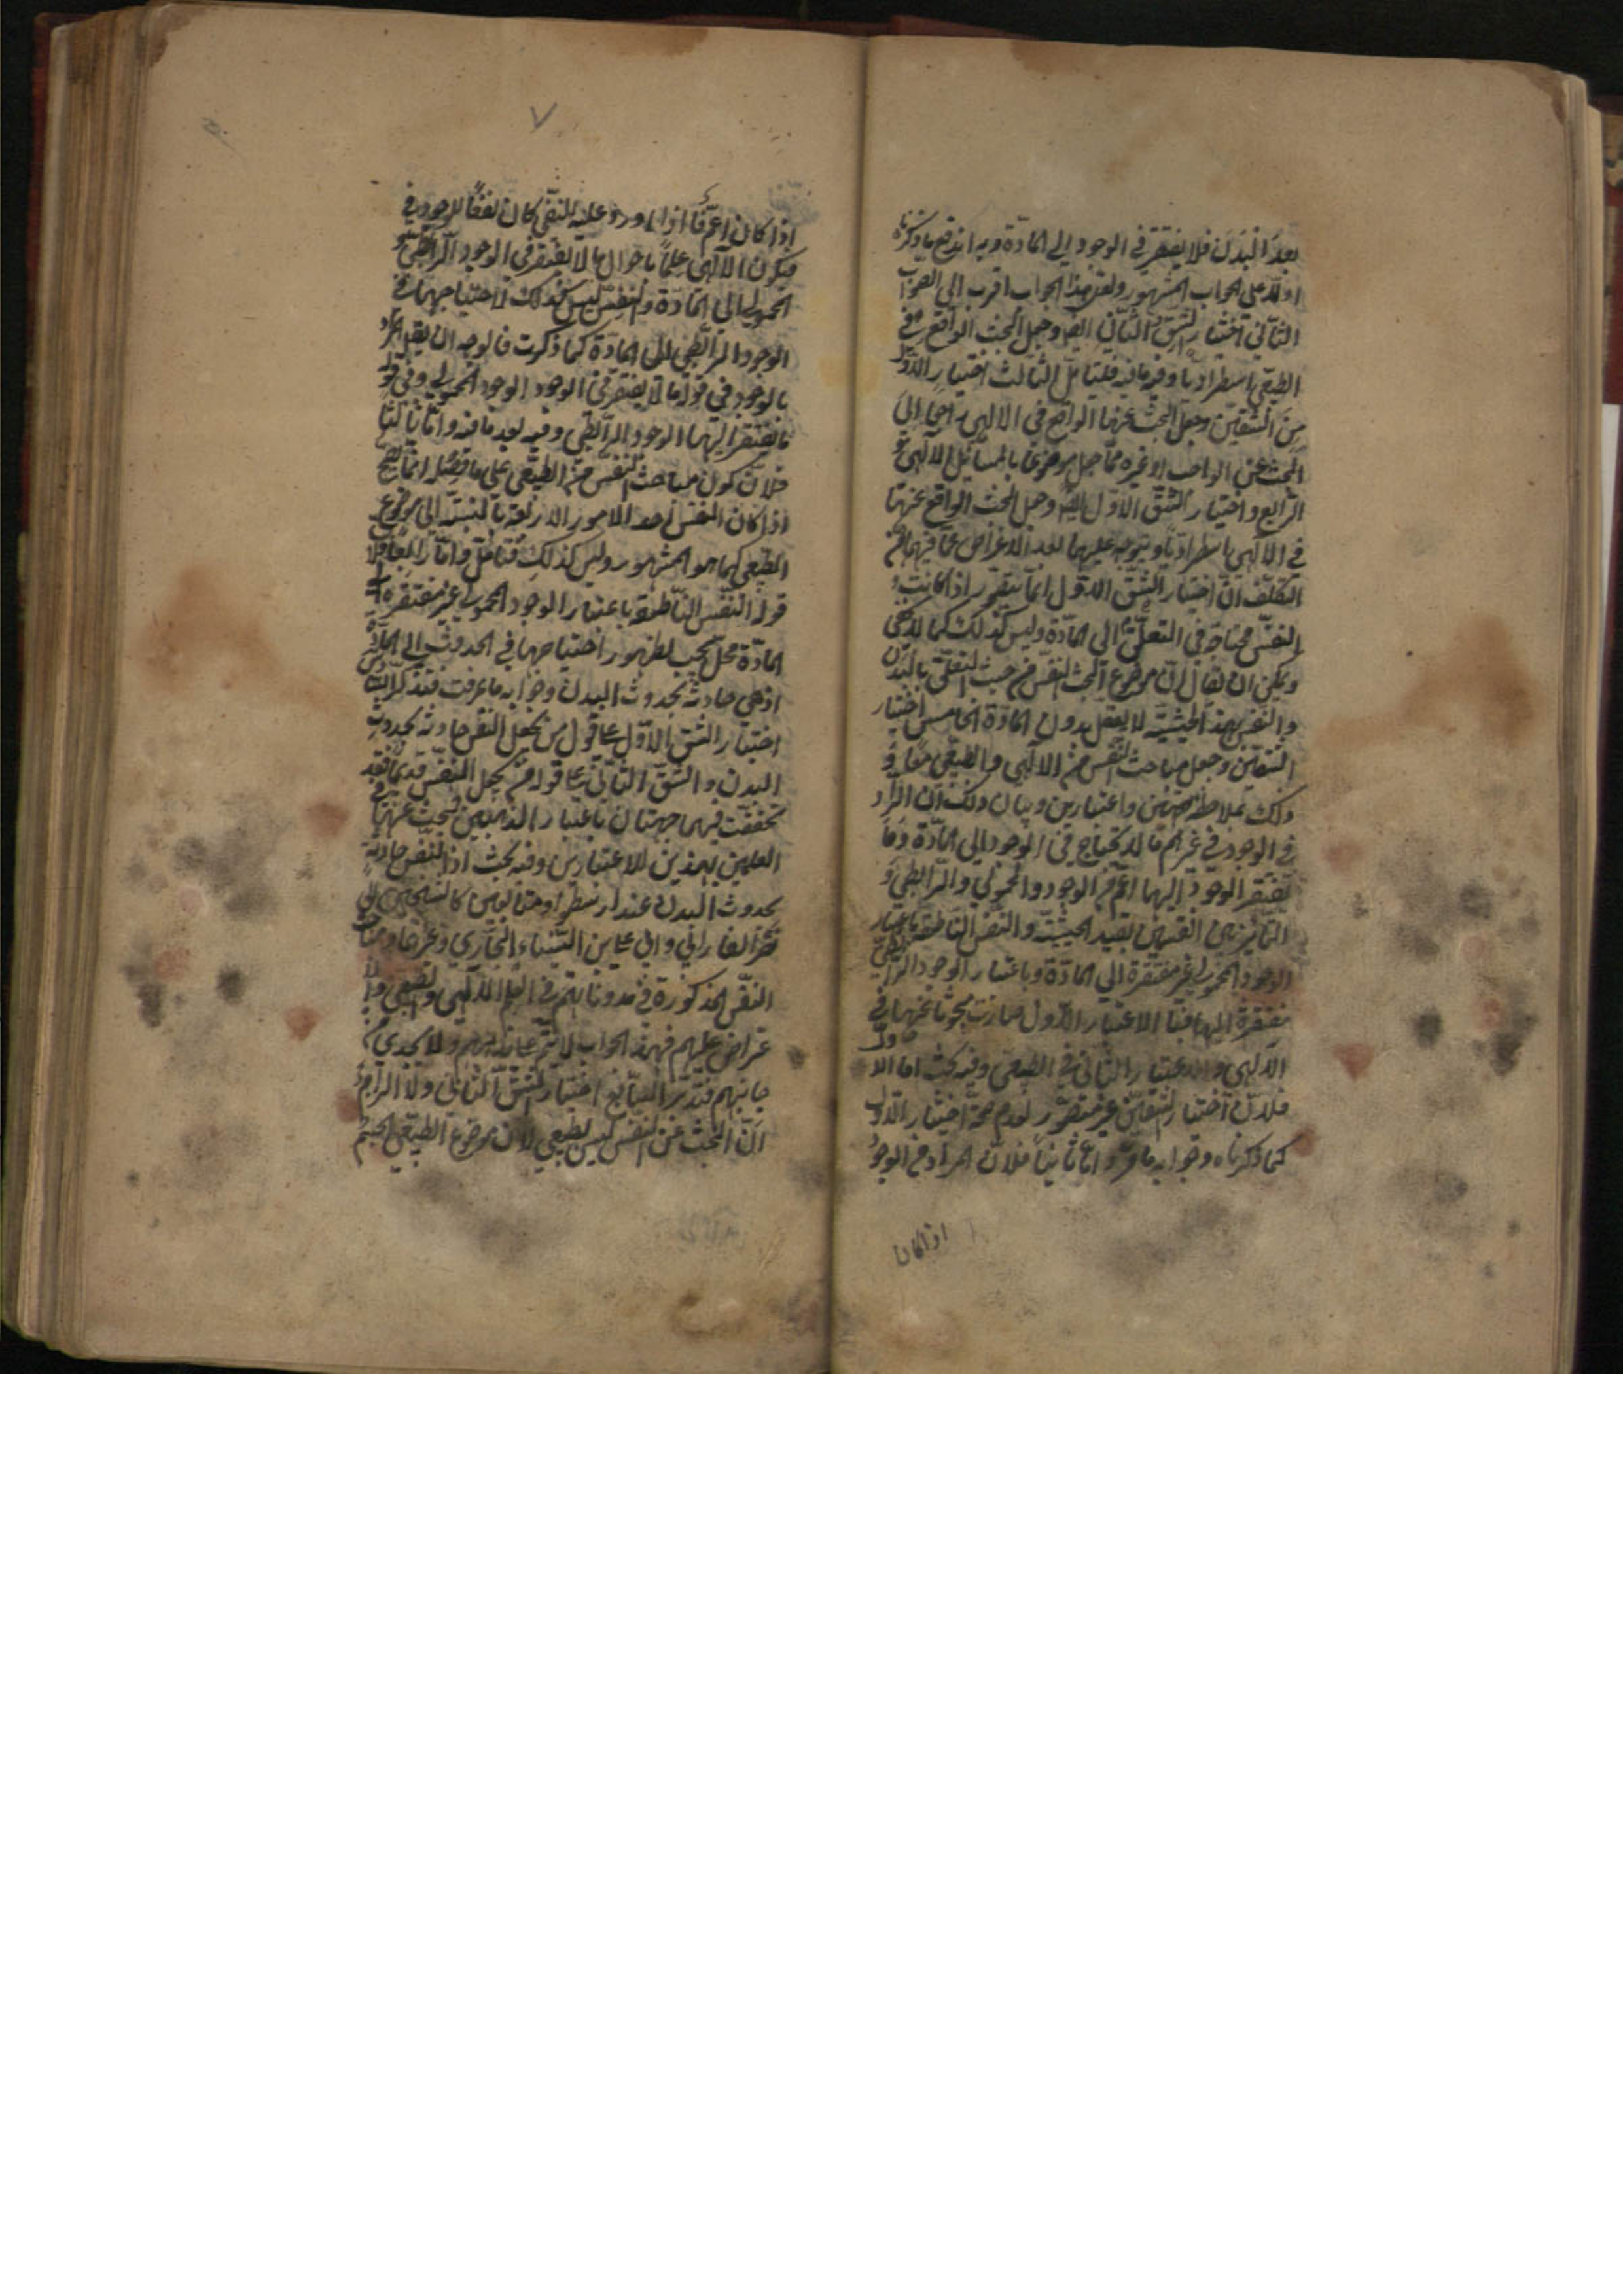 بعد البدن فلا يفتقر في الوجود الى المادة وبه اندفع ما ذكرناه
اولا على الجواب المشهور ولعل هذا الجواب اقرب الى الصواب
الثاني اختيار الشق الثاني ايضا وجعل البحث الواقع في
الطبيعي استطراديا وفيه ما فيه فليتأمل الثالث اختيار الاول
من الشقين وجعل البحث عنها الواقع في الالهي راجعا الى
البحث عن الواجب او غيره مما جعل موضوعا بالمسائل الالهي و
الرابع واختيار الشق الاول ايضا وجعل البحث الواقع عنها
في الالهي استطراديا ويتوجه عليهما بعد الاغراض عما فيهما من
التكلف ان اختيار الشق الاول انما يتصور اذا كانت
النفس محتاجة في التعقل الى المادة وليس كذلك كما لا يخفى
ويمكن ان يقال ان موضوع البحث النفس من حيث التعلق بالبدن
والنفس بهذه الحيثية لا يعقل بدون المادة الخامس اختيار
الشقين وجعل مباحث النفس من الالهي والطبيعي معا و
ذلك بملاحظة جهتين واعتبارين وبيان ذلك ان المراد
من الوجود في غرهم ما لا يحتاج في الوجود الى المادة وما
يفتقر الوجود اليها اعم من الوجود المحمولي والرابطي و
التمايز بين القسمين بقيد الحيثية والنفس الناطقة باعتبار
الوجود المحمولي غير مفتقرة الى المادة وباعتبار الوجود الرابطي
مفتقرة اليها فبالاعتبار الاول صارت مبحوثا عنها في
الالهي والاعتبار الثاني في الطبيعي وفيه بحث اما الاول
فلان اختيار الشقين غير متصور لعدم صحة اختيار الاول
كما ذكرناه وجوابه ما مر واما ثانيا فلان المراد من الوجود
اذا كان
٧
اذا كان اعم فاذا ورد عليه النفي كان نفيا للوجود في
فيكون الالهي علما باحوال ما لا يفتقر في الوجود الرابطي و
المحمولي الى المادة والنفس ليس كذلك لاحتياجها في
الوجود الرابطي الى المادة كما ذكرت فالوجه ان يقال المراد
بالوجود في قوله ما لا يفتقر في الوجود الوجود المحمولي وفي قوله
ما يفتقر اليها الوجود الرابطي وفيه بعد ما فيه واما ثالثا
فلان كون مباحث النفس من الطبيعي على ما فصل انما يصح
اذا كان النفس احد الامور الاربعة بالنسبة الى موضوع
الطبيعي كما هو المشهور وليس كذلك فتأمل واما رابعا فلان
قوله النفس الناطقة باعتبار الوجود المحمولي غير مفتقرة الى
المادة محل تعجب لظهور احتياجها في الحدوث الى المادة
اذ هي حادثة بحدوث البدن وجوابه ما عرفت فتذكر السادس
اختيار الشق الاول على قول من يجعل النفس حادثة بحدوث
البدن والشق الثاني على قول من يجعل النفس قديما فقد
تحققت فيهما جهتان باعتبار المذهبين فيبحث عنها في
العلمين بهذين الاعتبارين وفيه بحث اذ النفس حادثة
بحدوث البدن عند ارسطو ومتابعيه كالشيخين ابي
نصر الفارابي وابي علي بن السيناء البخاري وغيرهما ومباحث
النفس المذكورة في مدوناتهم في العلم الالهي والطبيعي والا
عتراض عليهم فهذا الجواب لا يتم على مذهبهم ولا يجدي من
جانبهم فتدبر السابع اختيار الشق الثاني ولا الراجع
ان البحث عن النفس ليس بطبيعي لان موضوع الطبيعي الجسم